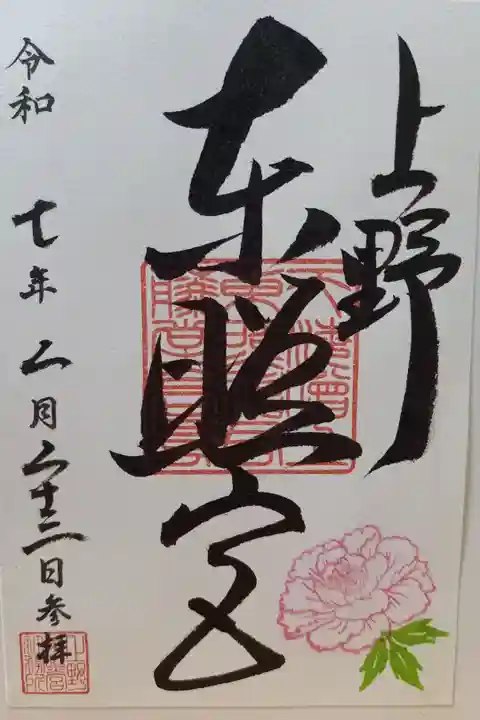 上野
東照宮
令和 七年 二月 二十三日 参拝